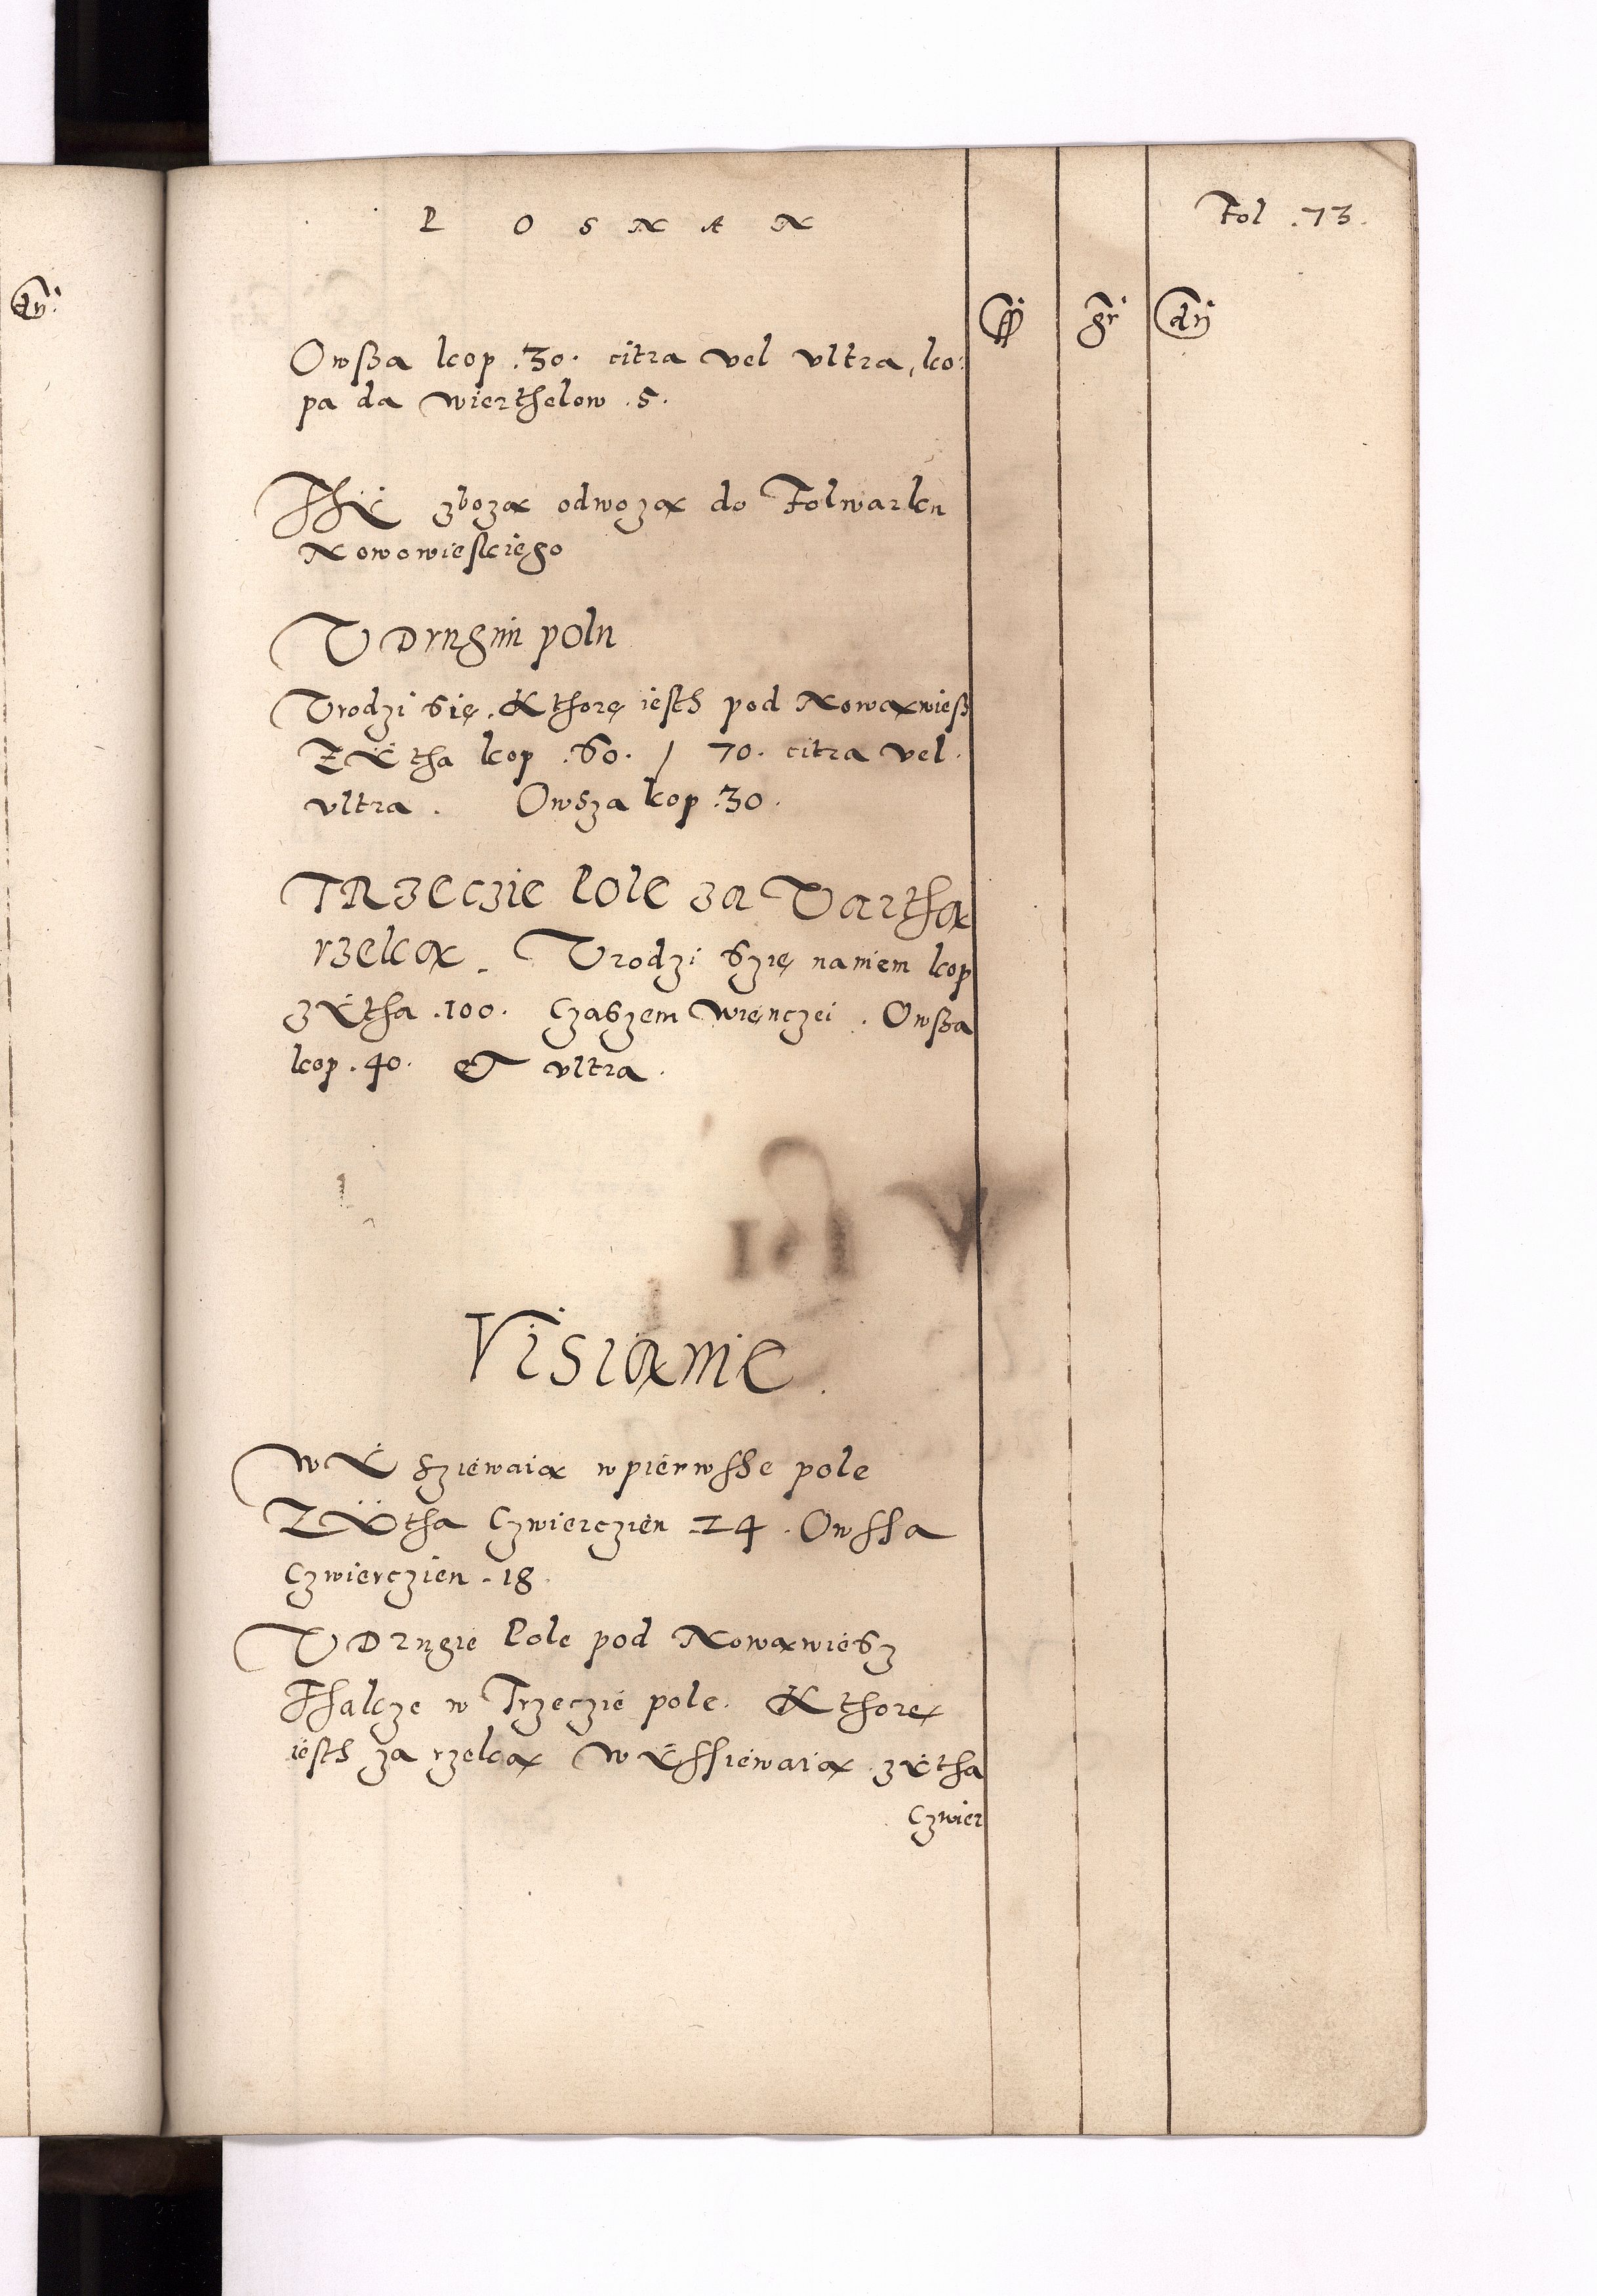 POSNAN
Fol .73.
dn.
fl gr dn
Owßa kop .30. citra vel vltra, ko:
pa da wierthelow .5.
Thÿ zbozą odwozą do Folwarku
Nowowieskiego
W Drugim polu
Vrodzi się. Kthorę iesth pod Nowąwieß
Zÿtha kop .60. / 70. citra vel
vltra . Owsza kop .30.
TRzeczie Pole za Warthą
rzeką. Vrodzi szię naniem kop
zÿtha .100. Czaszem więnczei . Owßa
kop .40. et vltra.
Visianie.
Wÿ sziewaią w pierwsshe pole
Zÿtha Czwierczien .24 . Owssa
Czwierczien .18.
W Drugie Pole pod Nowąwiesz
Thakze w Trzeczie pole. Kthorę
iesth za rzeką Wÿssiewaią zÿtha
Czwier